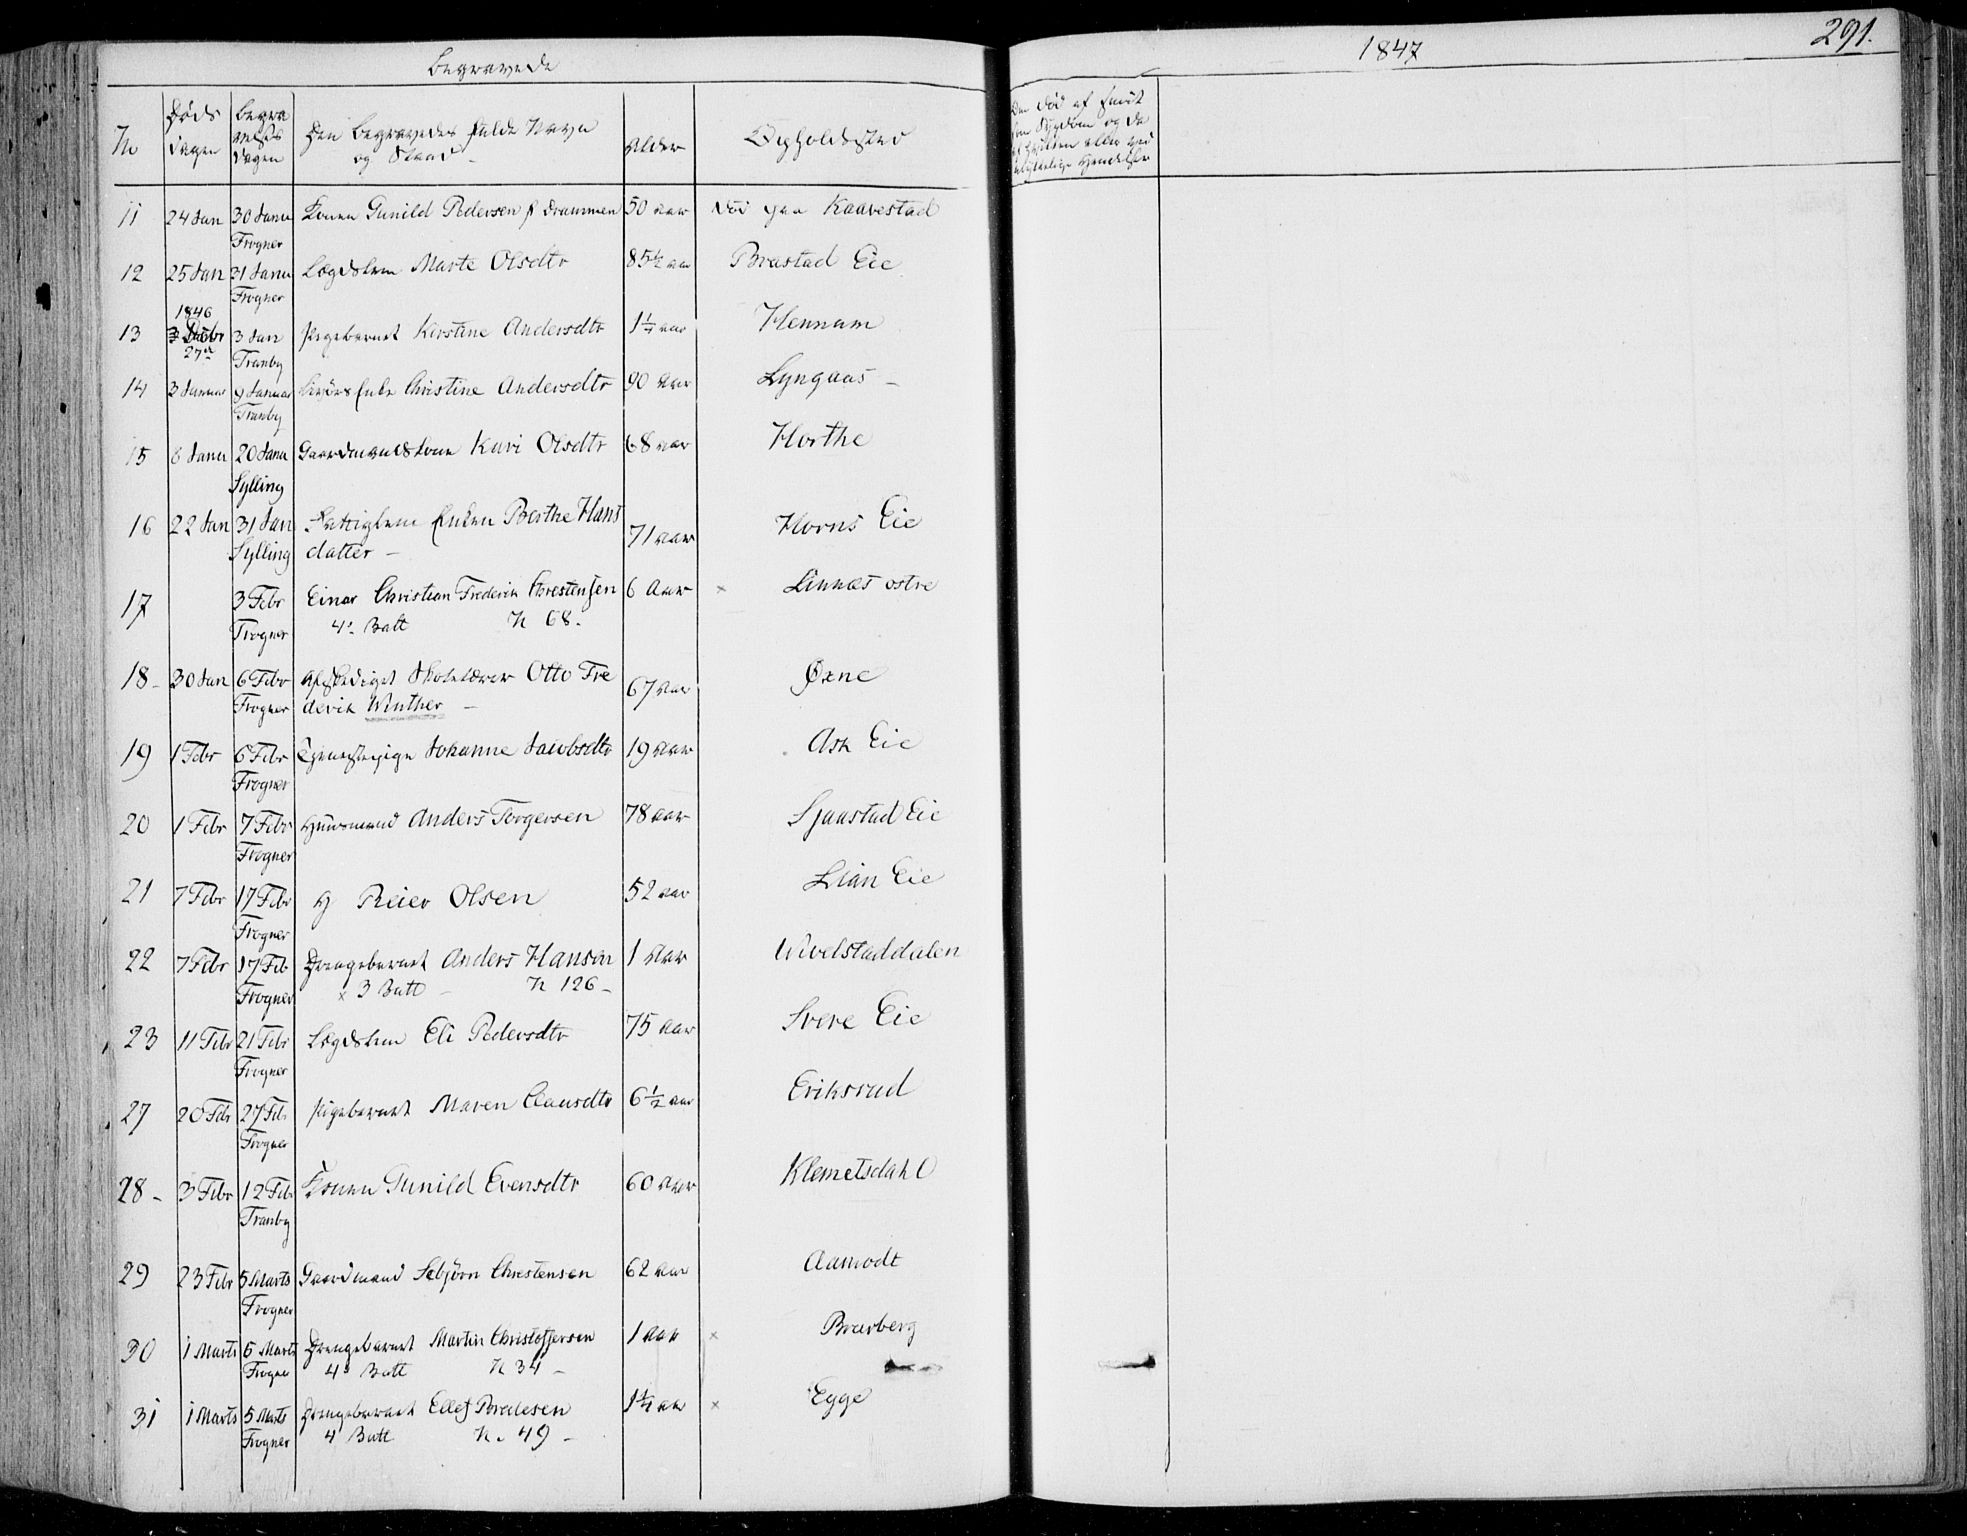 Begravede
1847
291.
No
Døds dagen
Begravelses dagen
Den Begravedes fulde Navn og Stand
Alder
Opholdssted
Om død af smit
som Sygdom og da
af hvilken eller ved
ulykkelige Hændelser
11 24 Jan 30 Janu Konen Gunild Pedersen f Drammen 50 aar død paa Kaavestad
Frogner
12 25 Jan 31 Janu Lægdslem Marte Olsdtr 85½ aar Brastad Eie
Frogner
1846
13 Decbr 3 Jan Pigebarnet Kirstine Andersdtr 1¼ aar Hennum
27de Tranby
14 3 Januar 9 Januar Enke Christine Andersdtr 90 Aar Lyngaas –
Tranby
15 8 Janu 20 Janu Gaardmandskone Kari Olsdtr 68 aar Horthe
Sylling
16 22 Jan 31 Jan Fattiglem Enken Berthe Hans 71 aar Horns Eie
Sylling datter –
17 3 Febr Einar Christian Frederik Chrestensen 6 Aar × Linnæs østre
Frogner 4' Batt N 68.
18 – 30 Jan 6 Febr Afskediget Skolelærer Otto Fre 67 aar Øxne
Frogner derik Winther –
19 1 Febr 6 Febr Tjenestepige Johanne Jacobsdtr 19 aar Ask Eie
Frogner
20 1 Febr 7 Febr Huusmand Anders Torgersen 78 aar Sjaastad Eie
Frogner
21 7 Febr 17 Febr H Reier Olsen 52 aar Lian Eie
Frogner
22 7 Febr 17 Feb Drengebarnet Anders Hansen 1 Aar Wivelstaddalen
Frogner × 3 Batt – N 126 –
23 11 Febr 21 Febr Lægdslem Eli Pedersdtr 75 Aar Svere Eie
Frogner
27 20 Febr 27 Feb Pigebarnet Maren Clausdtr 6½ aar Eriksrud
Frogner
28 – 3 Febr 12 Feb Konen Gunild Evensdtr 60 aar Klemetsdahl
Tranby
29 23 Febr 5 Marts Gaardmand Sebjørn Chrestensen 62 aar Aamodt
Frogner
30 1 Marts 6 Marts Drengebarnet Martin Christoffersen 1 Aar × Braaberg
Frogner 4' Batt N 34 –
31 1 Marts 5 Marts Drengebarnet Ellef Bredesen 1¼ aar × Egge
Frogner 4 Batt N. 49 –